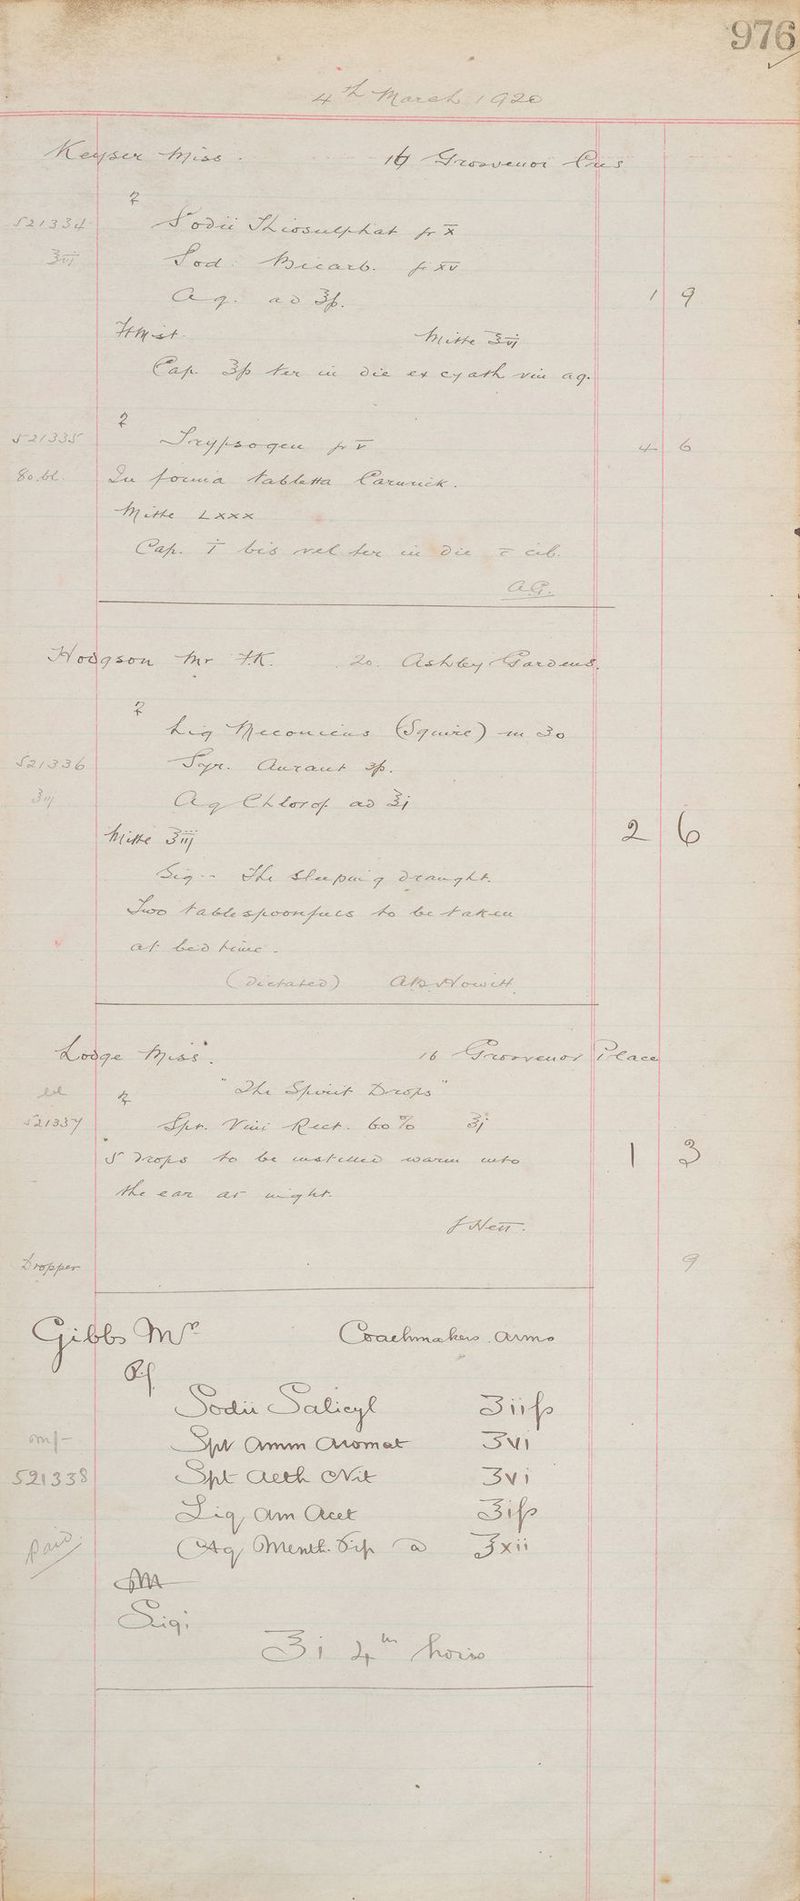 976
4th March 1920
Keyser Miss. 16 Grosvenor Cres
℞
521334 Sodii Thiosulphat gr x
℥vi Sod. Bicarb. gr xv
Aq. ad ℥ß. 1 9
Ft Mist. Mitte ℥vi
Cap. ℥ß ter in die ex cyath vin aq.
℞
521335 Trypsogen gr v 4 6
80.bl. In forma tabletta Carnrick.
Mitte Lxxx
Cap. i bis vel ter in die c cib.
A.G.
Hodgson Mr F.K. 20. Ashley Gardens.
℞
Liq Meconicus (Squire) m 30
521336 Syr. Aurant ʒß.
℥iij Aq Chlorof ad ℥j
Mitte ℥iij 2 6
Sig -- The sleeping draught.
Two tablespoonfuls to be taken
at bed time.
(dictated) AB Howitt
Lodge Miss. 16 Grosvenor Place
℞ "The Spirit Drops"
521337 Spr. Vini Rect. 60% ℥j
5 drops to be instilled warm into 1 3
the ear at night.
J Nett.
Dropper 9
Gibbs Mr Coachmakers Arms
Rx
Sodii Salicyl ʒiiß
Spr Amm Aromat ʒvi
521338 Spt Aeth Nit ʒvi
Liq Am Acet ℥iß
Paid. Aq Menth. Pip a ℥xii
M
Sig:
℥i 4th hours